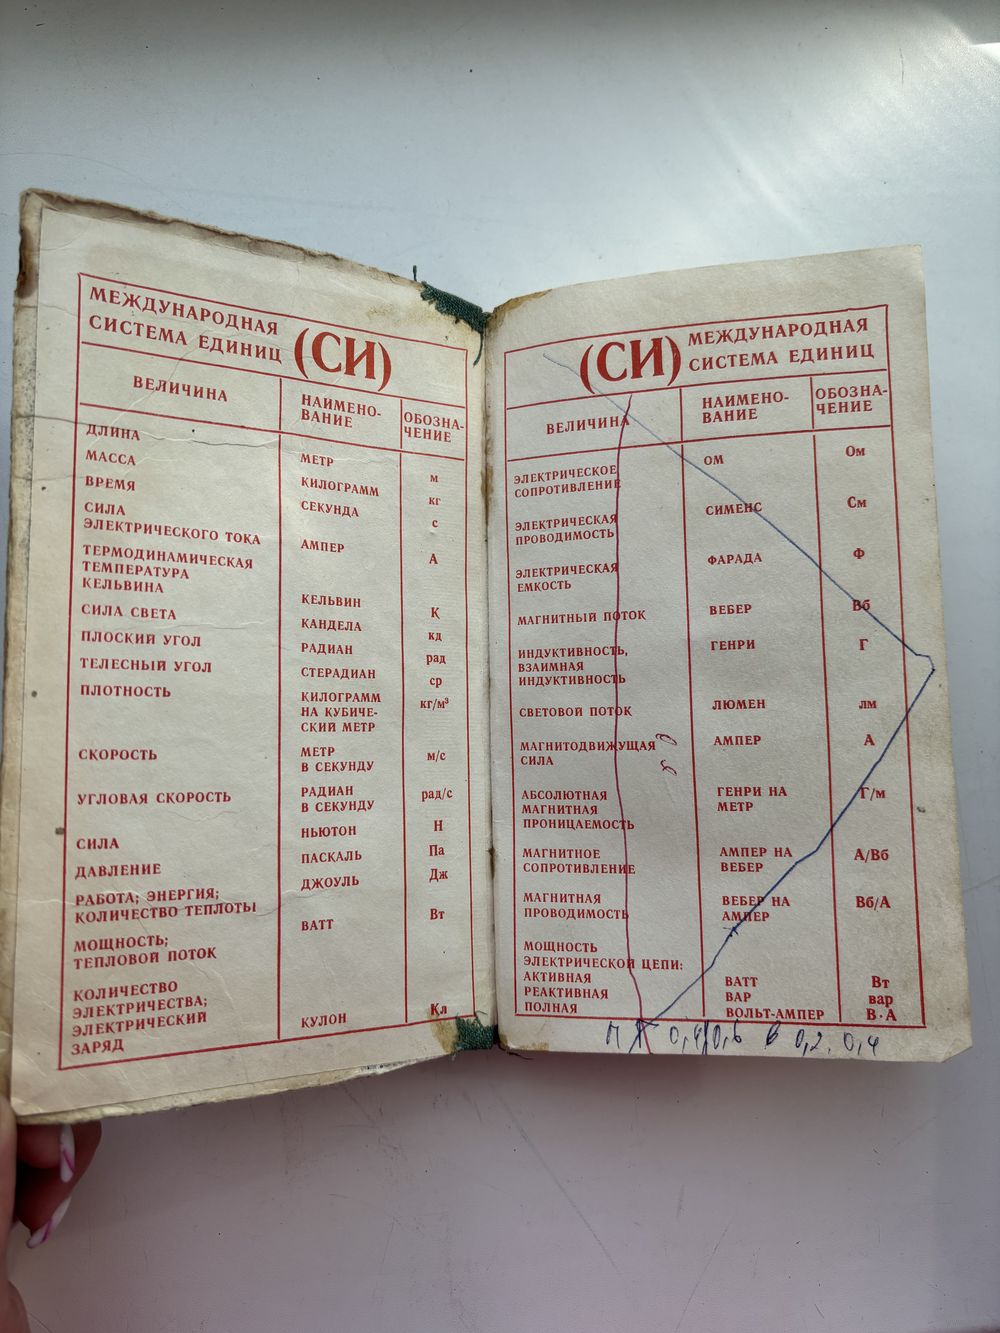 МЕЖДУНАРОДНАЯ
СИСТЕМА ЕДИНИЦ (СИ)
ВЕЛИЧИНА НАИМЕНО- ОБОЗНА-
ВАНИЕ ЧЕНИЕ
ДЛИНА МЕТР м
МАССА КИЛОГРАММ кг
ВРЕМЯ СЕКУНДА с
СИЛА
ЭЛЕКТРИЧЕСКОГО ТОКА АМПЕР А
ТЕРМОДИНАМИЧЕСКАЯ
ТЕМПЕРАТУРА
КЕЛЬВИНА КЕЛЬВИН К
СИЛА СВЕТА КАНДЕЛА кд
ПЛОСКИЙ УГОЛ РАДИАН рад
ТЕЛЕСНЫЙ УГОЛ СТЕРАДИАН ср
ПЛОТНОСТЬ КИЛОГРАММ кг/м³
НА КУБИЧЕ-
СКИЙ МЕТР
СКОРОСТЬ МЕТР м/с
В СЕКУНДУ
УГЛОВАЯ СКОРОСТЬ РАДИАН рад/с
В СЕКУНДУ
СИЛА НЬЮТОН Н
ДАВЛЕНИЕ ПАСКАЛЬ Па
РАБОТА; ЭНЕРГИЯ; ДЖОУЛЬ Дж
КОЛИЧЕСТВО ТЕПЛОТЫ
МОЩНОСТЬ; ВАТТ Вт
ТЕПЛОВОЙ ПОТОК
КОЛИЧЕСТВО
ЭЛЕКТРИЧЕСТВА;
ЭЛЕКТРИЧЕСКИЙ
ЗАРЯД КУЛОН Кл
(СИ) МЕЖДУНАРОДНАЯ
СИСТЕМА ЕДИНИЦ
ВЕЛИЧИНА НАИМЕНО- ОБОЗНА-
ВАНИЕ ЧЕНИЕ
ЭЛЕКТРИЧЕСКОЕ ОМ Ом
СОПРОТИВЛЕНИЕ
ЭЛЕКТРИЧЕСКАЯ СИМЕНС См
ПРОВОДИМОСТЬ
ЭЛЕКТРИЧЕСКАЯ ФАРАДА Ф
ЕМКОСТЬ
МАГНИТНЫЙ ПОТОК ВЕБЕР Вб
ИНДУКТИВНОСТЬ, ГЕНРИ Г
ВЗАИМНАЯ
ИНДУКТИВНОСТЬ
СВЕТОВОЙ ПОТОК ЛЮМЕН лм
МАГНИТОДВИЖУЩАЯ АМПЕР А
СИЛА
АБСОЛЮТНАЯ ГЕНРИ НА Г/м
МАГНИТНАЯ МЕТР
ПРОНИЦАЕМОСТЬ
МАГНИТНОЕ АМПЕР НА А/Вб
СОПРОТИВЛЕНИЕ ВЕБЕР
МАГНИТНАЯ ВЕБЕР НА Вб/А
ПРОВОДИМОСТЬ АМПЕР
МОЩНОСТЬ
ЭЛЕКТРИЧЕСКОЙ ЦЕПИ:
АКТИВНАЯ ВАТТ Вт
РЕАКТИВНАЯ ВАР вар
ПОЛНАЯ ВОЛЬТ-АМПЕР В·А
0,4/0,6 в 0,2. 0,4